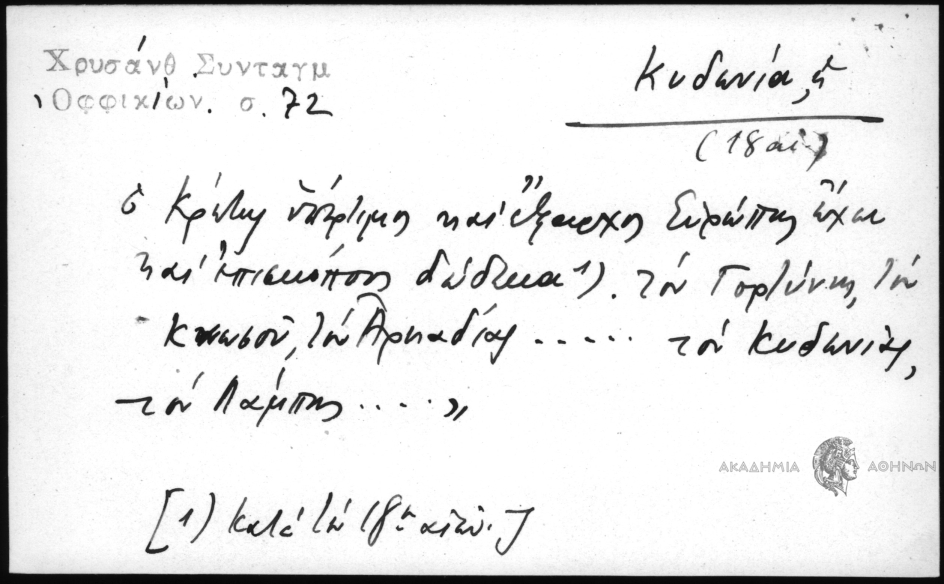 Χρυσάνθ. Συνταγμ
Ὀφφικίων. σ. 72
Κυδωνία, ἡ
(18 αἰ)
ὁ Κρήτης ὑπέρτιμος καὶ ἔξαρχος Εὐρώπης ἔχων
καὶ ἐπισκόπους δώδεκα 1). τὸν Γορτύνης, τὸν
Κνωσοῦ, τὸν Ἀρκαδίας ...... τὸν Κυδωνίας,
τὸν Λάμπης ....»
ΑΚΑΔΗΜΙΑ ΑΘΗΝΩΝ
[1) κατὰ τὸν 18ον αἰῶν.]